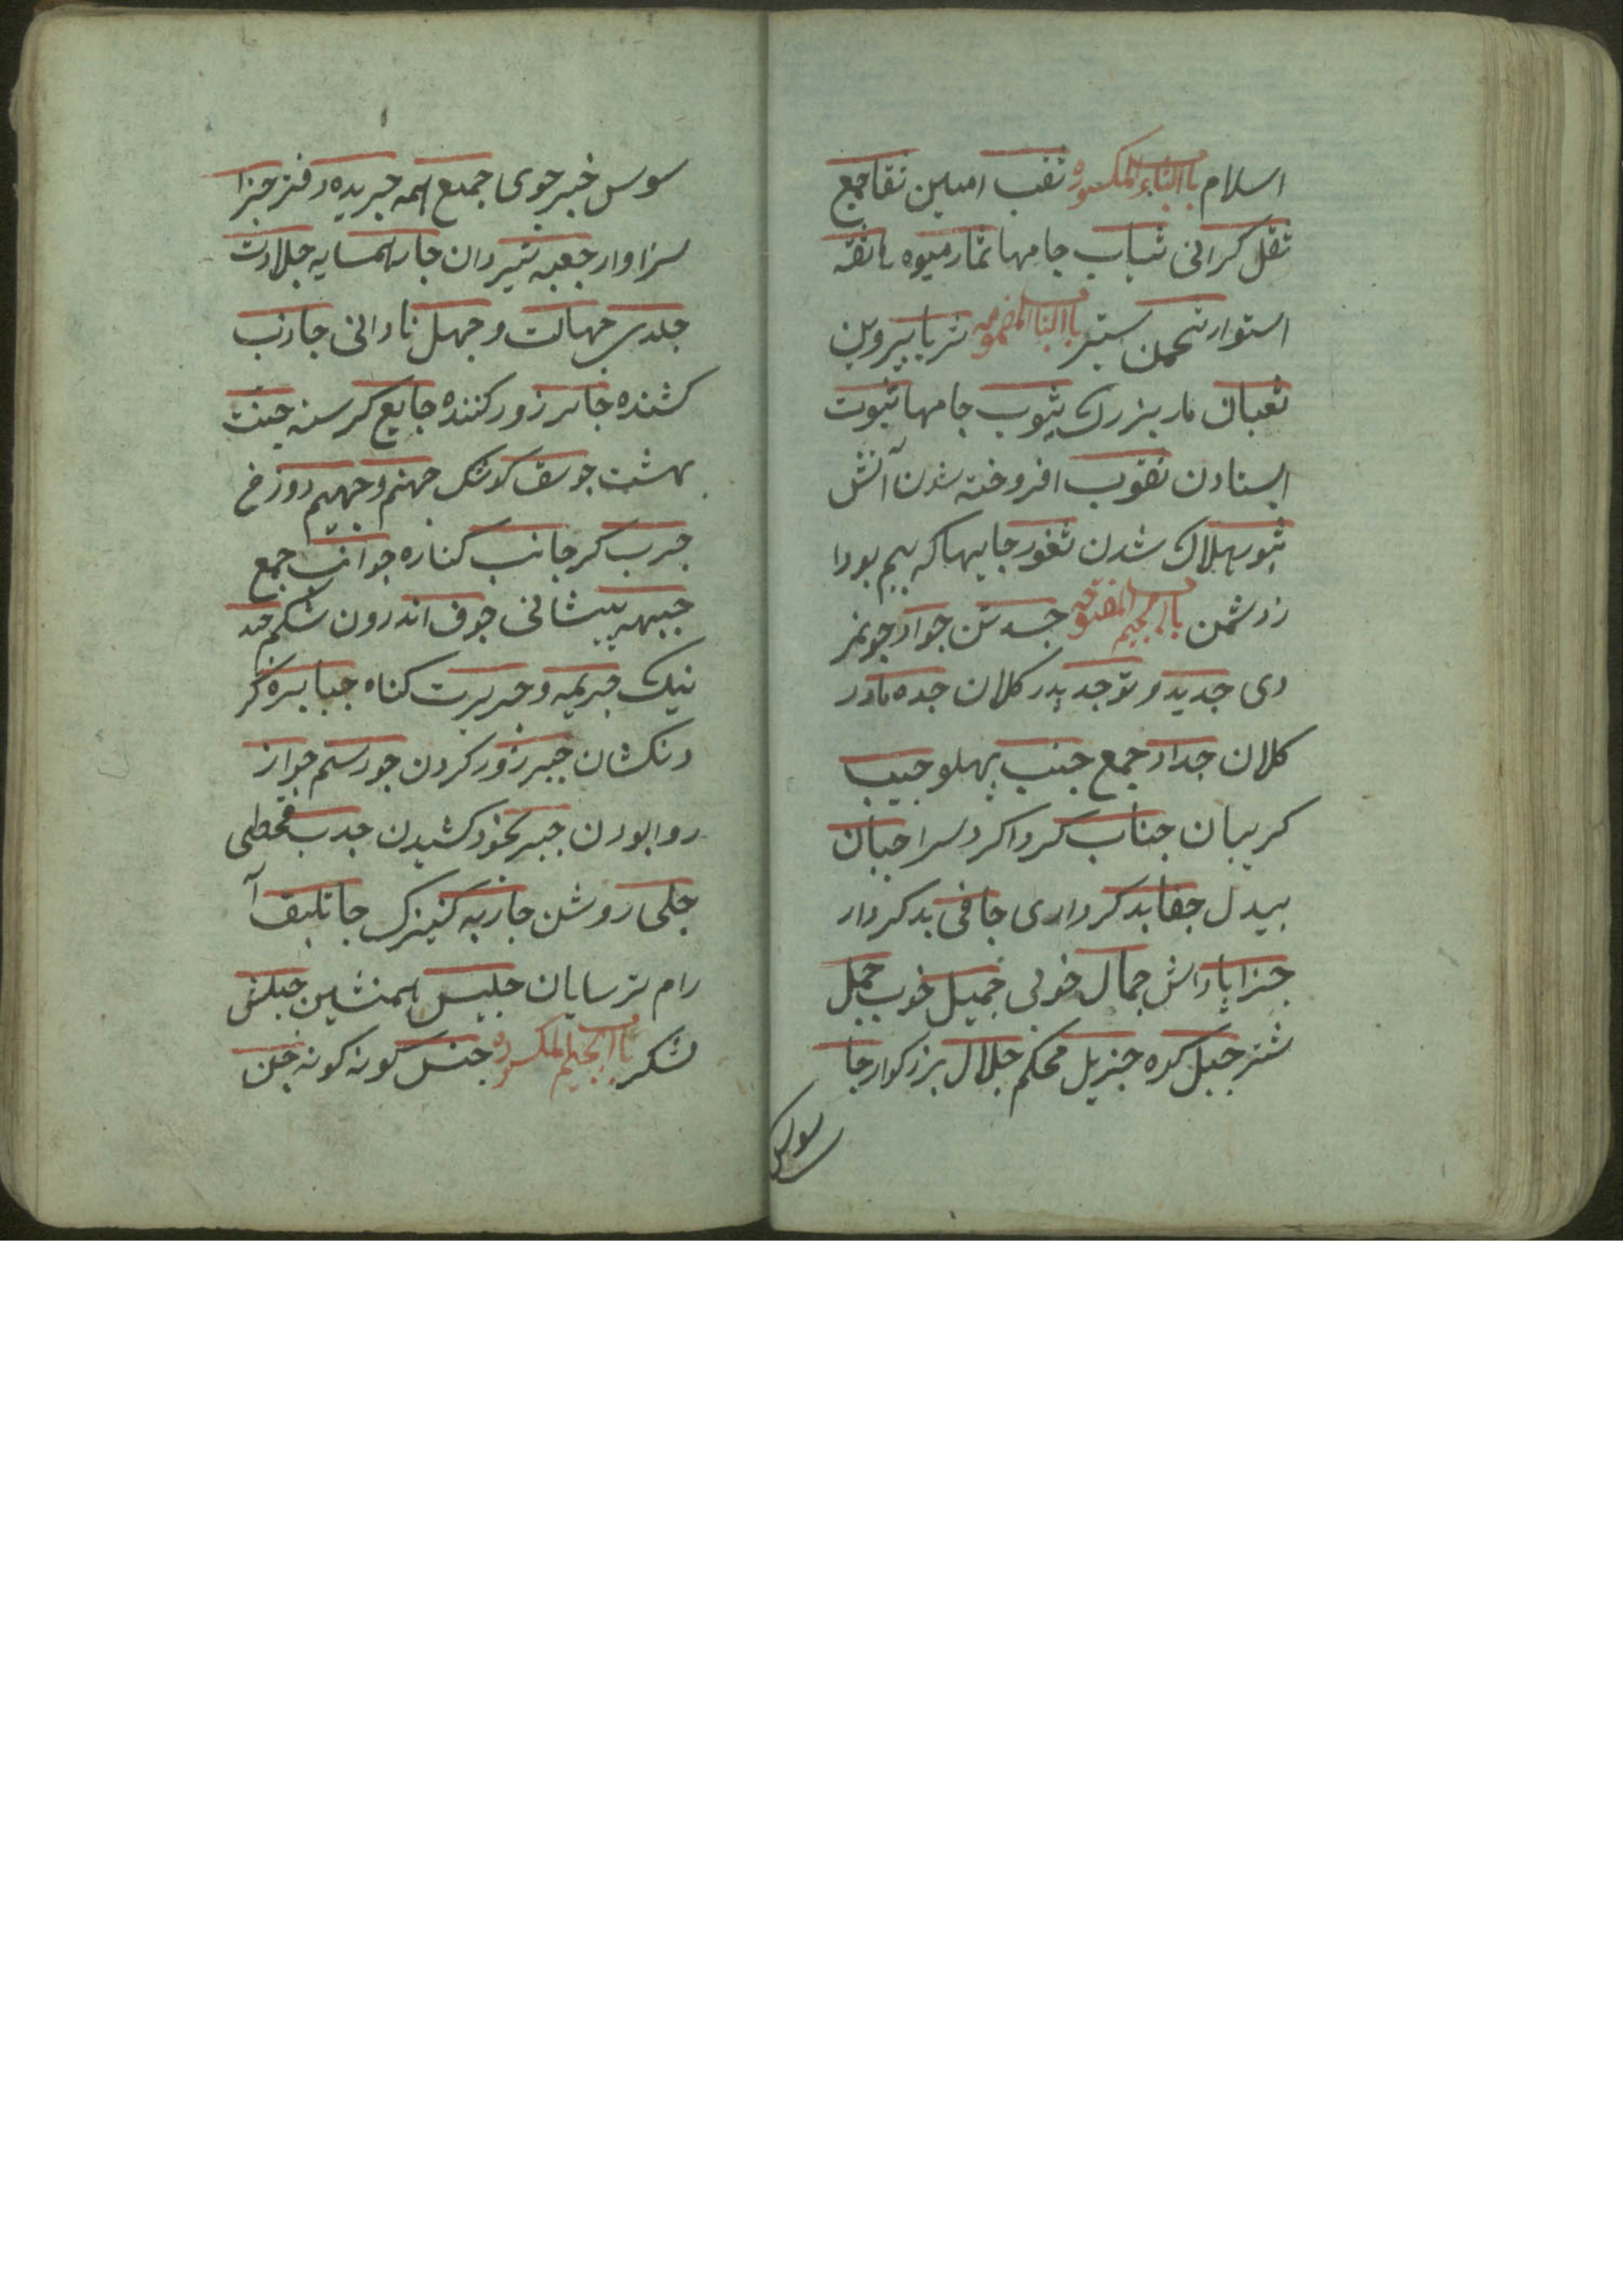 اسلام باالثاء المکسوره ثقب امین ثقا جمع
ثقل کرانی ثیاب جامها ثمار میوه ها ثقه
استوار ثخین ستبر باالثا المضمومه ثریا پیروین
ثعبان مار بزرک ثیوب جامها ثبوت
ایستادن ثقوب افروخته شدن آتش
ثبور هلاک شدن ثغور جایها که بیم بود ا
ز دشمن باالجیم المفتوحه جسد تن جواد جونمر
دی جدید و نو جد پدر کلان جده مادر
کلان جداد جمع جنب پهلو جیب
کریبان جناب کرداکرد سرا جبان
بیدل جفا بدکرداری جافی بدکردار
جزا پاداش جمال خوبی جمیل خوب جمل
شتر جبل کوه جزیل محکم جلال بزرکوار جا
سوس
سوس خبر جوی جمیع همه جریده دفتر جزا
سزاوار جعبه تیردان جار همسایه جلادت
جلدی جهالت و جهل نادانی جاذب
کشنده جابر زور کننده جایع کرسنه جنت
بهشت جوسق کوشک جهنم و جهیم دوزخ
جرب کر جانب کناره جوانب جمع
جبهه پیشانی جوف اندرون شکم جید
نیک جریمه و جریرت کناه جبابره کر
دنکشان جبر زور کردن جور ستم جواز
روا بودن جبر بخود کشیدن جدب قحطی
جلی روشن جاریه کنیزک جاثلیق آ
رام ترسایان جلیس همنشین جیش
لشکر باالجیم المکسوره جنس کونه کونه جن